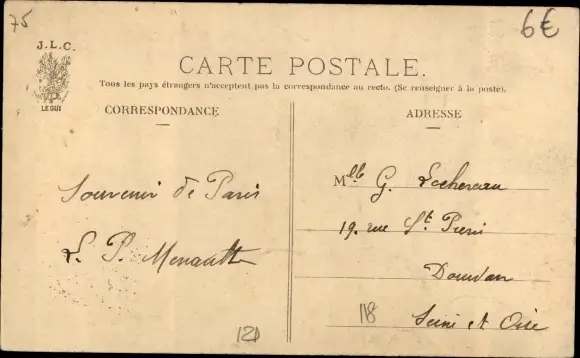 75
6€
J.L.C.
LE GUI
CARTE POSTALE.
Tous les pays étrangers n'acceptent pas la correspondance au recto. (Se renseigner à la poste).
CORRESPONDANCE
ADRESSE
Souvenir de Paris
P. Menault
Mlle G. Lochereau
19. rue St. Pierre
Dourdan
Seine et Oise
121
118